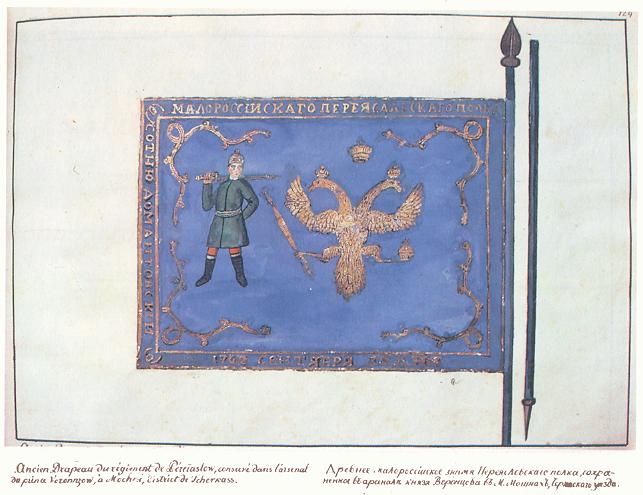 124
МАЛОРОССІИСКАГО ПЕРЕЯСЛАВСКАГО ПОЛКУ
СОТНЮ ДОМАНТОВСКИ
СЕНТЯБРЯ
Ancien Drapeau du régiment de Péréiaslow, conservé dans l'arsenal
du prince Voronzow, à Mochni, District de Tcherkass.
Древнее малороссійское знамя Переяславскаго полка, сохра-
ненное въ арсеналѣ князя Воронцова въ М. Мошнахъ, Черкасскаго уезда.